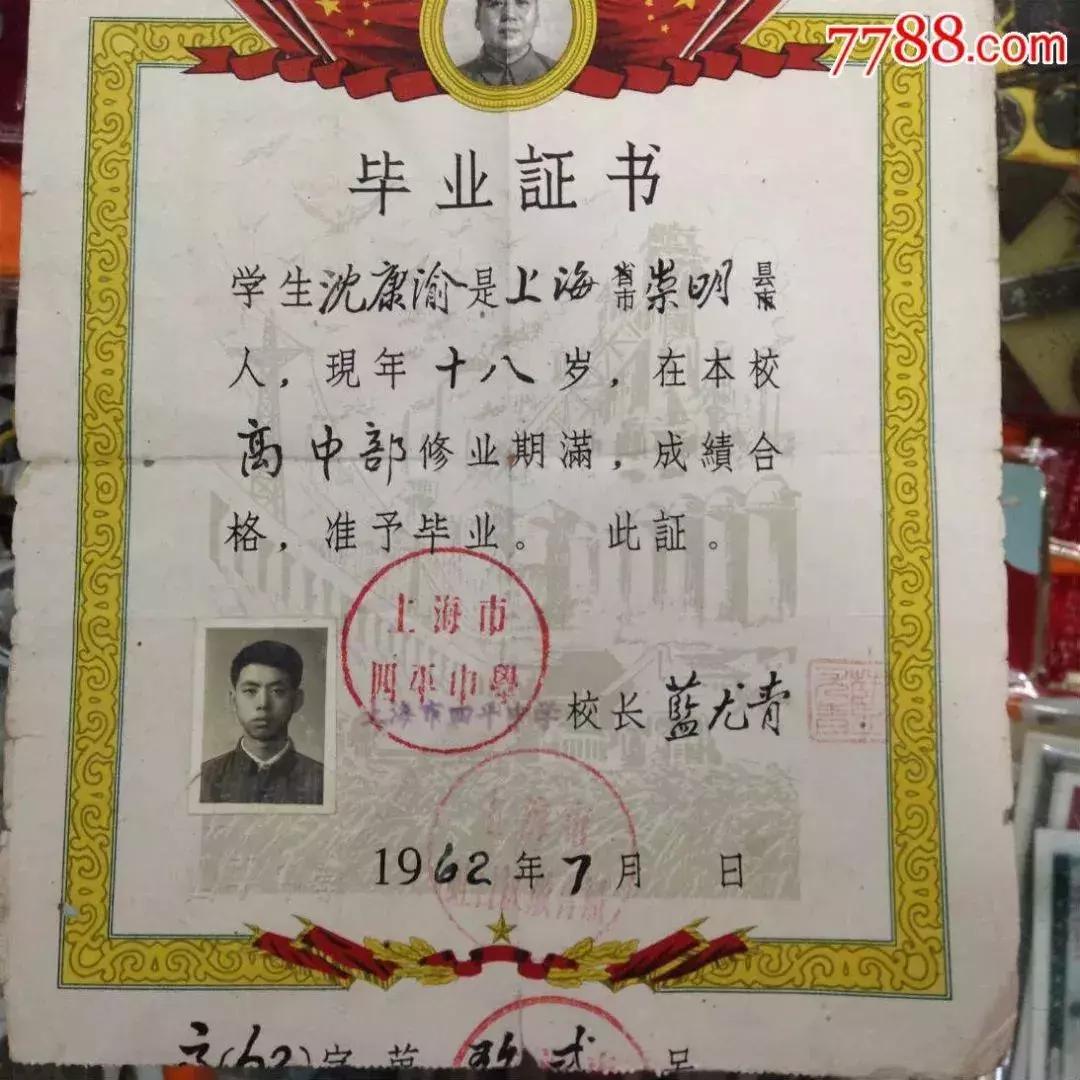 7788.com
毕业証书
学生沈康渝是上海省市崇明县市
人，現年十八岁，在本校
高中部修业期滿，成績合
格，准予毕业。 此証。
上海市
四平中學
上海市四平中学
校长 藍尤青
1962年7月 日
(62)字第 号